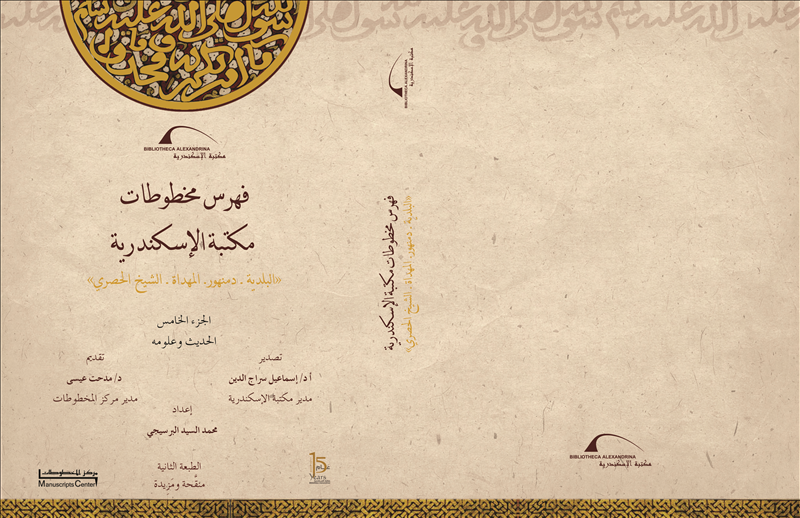 BIBLIOTHECA ALEXANDRINA
مكتبة الإسكندرية
فهرس مخطوطات
مكتبة الإسكندرية
«البلدية . دمنهور. المهداة . الشيخ الحصري»
الجزء الخامس
الحديث وعلومه
تصدير
أ د/ إسماعيل سراج الدين
مدير مكتبة الإسكندرية
تقديم
د/ مدحت عيسى
مدير مركز المخطوطات
إعداد
محمد السيد البرسيجي
الطبعة الثانية
منقحة ومزيدة
مركز المخطوطات
Manuscripts Center
15
عام
Years
BIBLIOTHECA ALEXANDRINA
مكتبة الإسكندرية
فهرس مخطوطات مكتبة الإسكندرية
«البلدية . دمنهور. المهداة . الشيخ الحصري»
BIBLIOTHECA ALEXANDRINA
مكتبة الإسكندرية